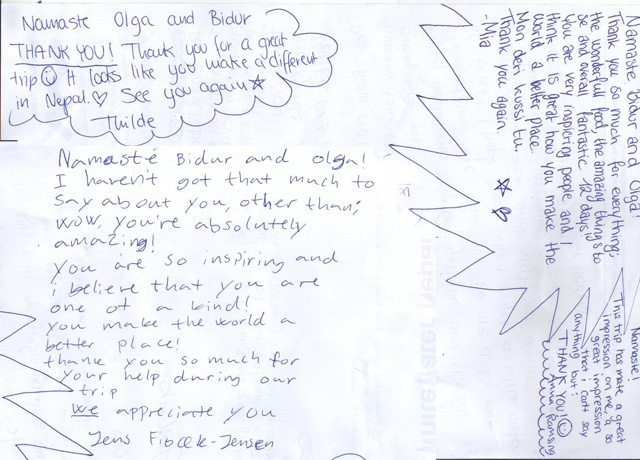 Namaste Olga and Bidur
THANK YOU! Thank you for a great
trip☺ It looks like you make a different
in Nepal.♡ See you again☆
Thilde
Namasté Bidur and olga!
I haven't got that much to
say about you, other than;
wow, you're absolutely
amazing!
you are so inspiring and
i believe that you are
one of a kind!
you make the world a
better place!
thank you so much for
your help during our
trip
we appreciate you
Jens Fibæk-Jensen
Namaste Bidur an Olga!
Thank you so much for everything;
the wonderfull food, the amazing things to
se and overall fantastic 12 days!☺
You are very inspiering people and I
think it is great how you make the
world a better place.
Mon deri kussi tu.
Thank you again.
-Mia
Namaste!
This trip has make a great
impression on me, a so
great impression
that i can't say
anything but:
THANK YOU!☺
Anna Ramsing